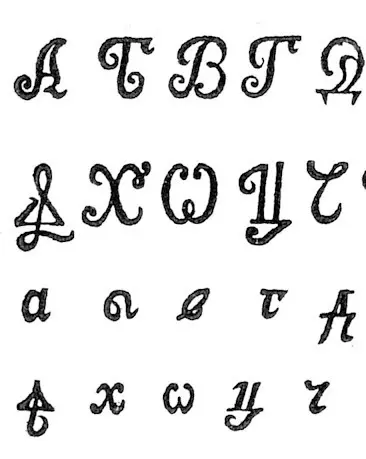 А Б В Г Д
Ф Х Ѡ Ц Ч
а б в г д
ф х ѡ ц ч